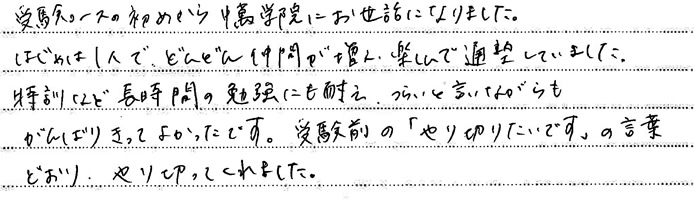 受験コースの初めから中萬学院にお世話になりました。
はじめは1人で、どんどん仲間が増え、楽しんで通塾していました。
特訓など長時間の勉強にも耐え、つらいと言いながらも
がんばりきってよかったです。受験前の「やり切りたいです」の言葉
どおり、やり切ってくれました。